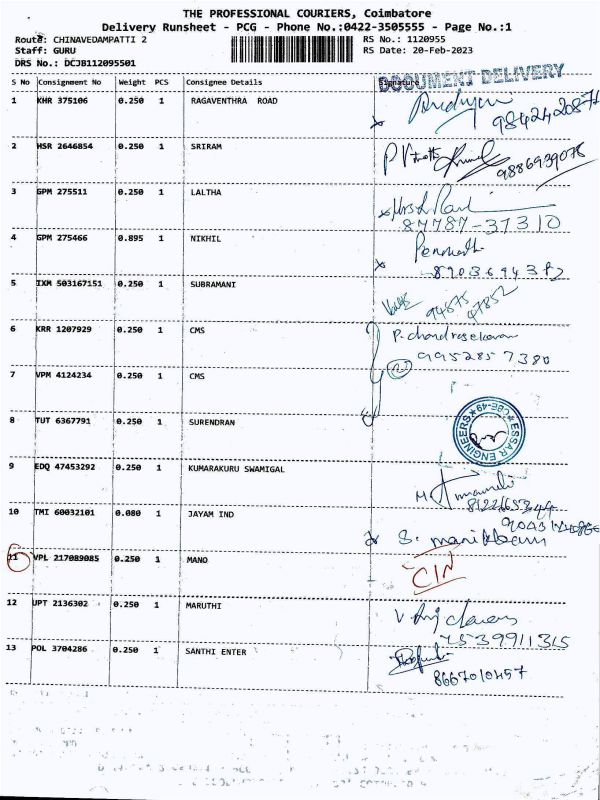 THE PROFESSIONAL COURIERS, Coimbatore
Delivery Runsheet - PCG - Phone No.:0422-3505555 - Page No.:1
Route: CHINAVEDAMPATTI 2
RS No.: 1120955
Staff: GURU
RS Date: 20-Feb-2023
DRS No.: DCJ8112095501
S No Consignment No Weight PCS Consignee Details Signature
DOCUMENT DELIVERY
1 KHR 375106 0.250 1 RAGAVENTHRA ROAD
2 HSR 2646854 0.250 1 SRIRAM
9886939078
3 GPM 275511 0.250 1 LALTHA
87787-37310
4 GPM 275466 0.895 1 NIKHIL
5 IXM 503167151 0.250 1 SUBRAMANI
94875 47852
6 KRR 1207929 0.250 1 CMS
P. chandrasekaran
9952857380
7 VPM 4124234 0.250 1 CMS
8 TUT 6367791 0.250 1 SURENDRAN
ESSAR ENGINEERS CBE-49
9 EDQ 47453292 0.250 1 KUMARAKURU SWAMIGAL
10 TMI 60032101 0.080 1 JAYAM IND
S. manikkam
11 VPL 217089085 0.250 1 MANO
CIN
12 UPT 2136302 0.250 1 MARUTHI
7539911315
13 POL 3704286 0.250 1 SANTHI ENTER
8667010457